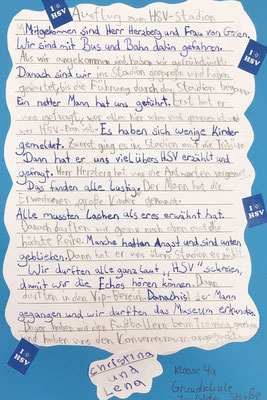 I ♥ HSV
Ausflug zum HSV-Stadion
Mitgekommen sind Herr Herzberg und Frau von
Wir sind mit Bus und Bahn dahin gefahren.
Als wir angekommen sind haben wir gefrühstückt.
I ♥ HSV
Danach sind wir ins Stadion gegangen und haben
gewartet, bis die Führung durch das Stadion begann.
Ein netter Mann hat uns geführt. Erst hat er
uns gefragt, was alles hier schon mal gewesen ist und
wer HSV-Fan ist. Es haben sich wenige Kinder
gemeldet. Zuerst ging es ins Stadion auf die Tribüne.
Dann hat er uns viel übers HSV erzählt und
gefragt. Herr Herzberg hat uns die Antworten vorgesagt.
Das fanden alle Lustig. Der Mann hat die
Erwachsenen große Kinder genannt.
I ♥ HSV
Alle mussten Lachen als er es erwähnt hat.
Danach durften wir ganz nach oben auf die
höchste Reihe. Manche hatten Angst und sind unten
geblieben. Dann hat er uns übers Stadion erzählt.
Wir durften alle ganz laut „HSV" schreien,
damit wir die Echos hören können. Dann
durften in den Vip-Bereich. Danach ist der Mann
gegangen und wir durften das Museum erkunden.
I ♥ HSV
haben wir den Fußballern beim Trainieren gesehen
und haben uns den Konferenzraum angesehen.
Christina
und
Lena
Klasse 4a
Grundschule